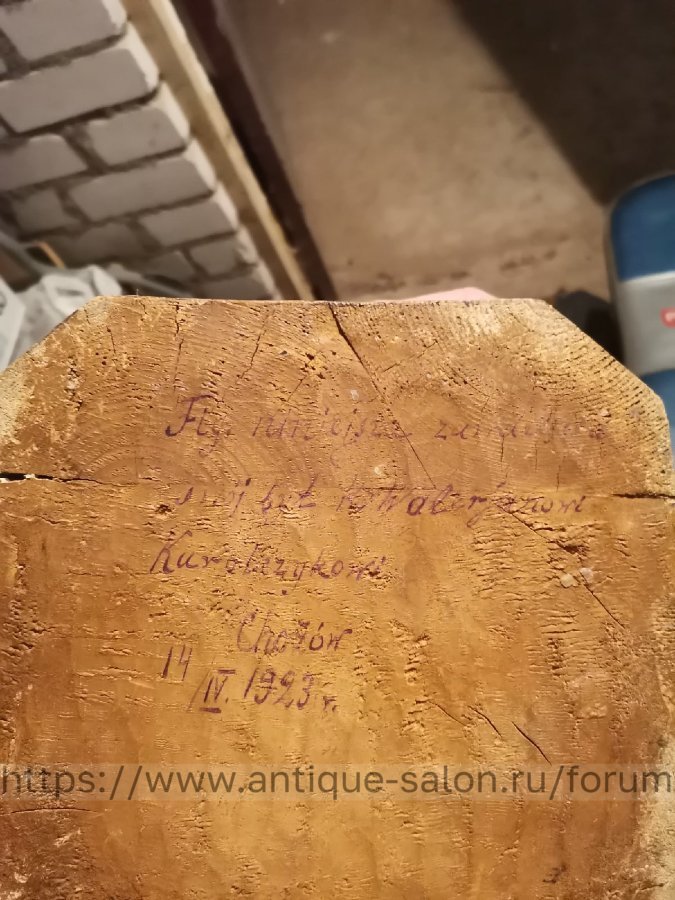 Fig. niniejsza zawdzięcza
swój byt W. Walerjanowi
Kurobczykowi
Chorzów
14/IV. 1923 r.
https://www.antique-salon.ru/forum